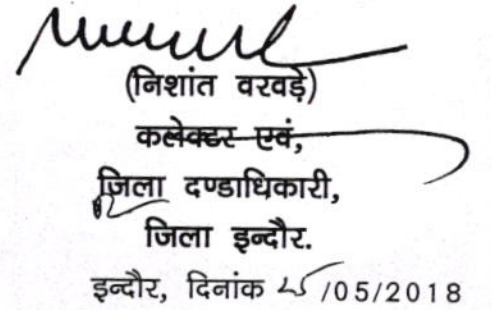 (निशांत वरवड़े)
कलेक्टर एवं,
जिला दण्डाधिकारी,
जिला इन्दौर.
इन्दौर, दिनांक 25/05/2018